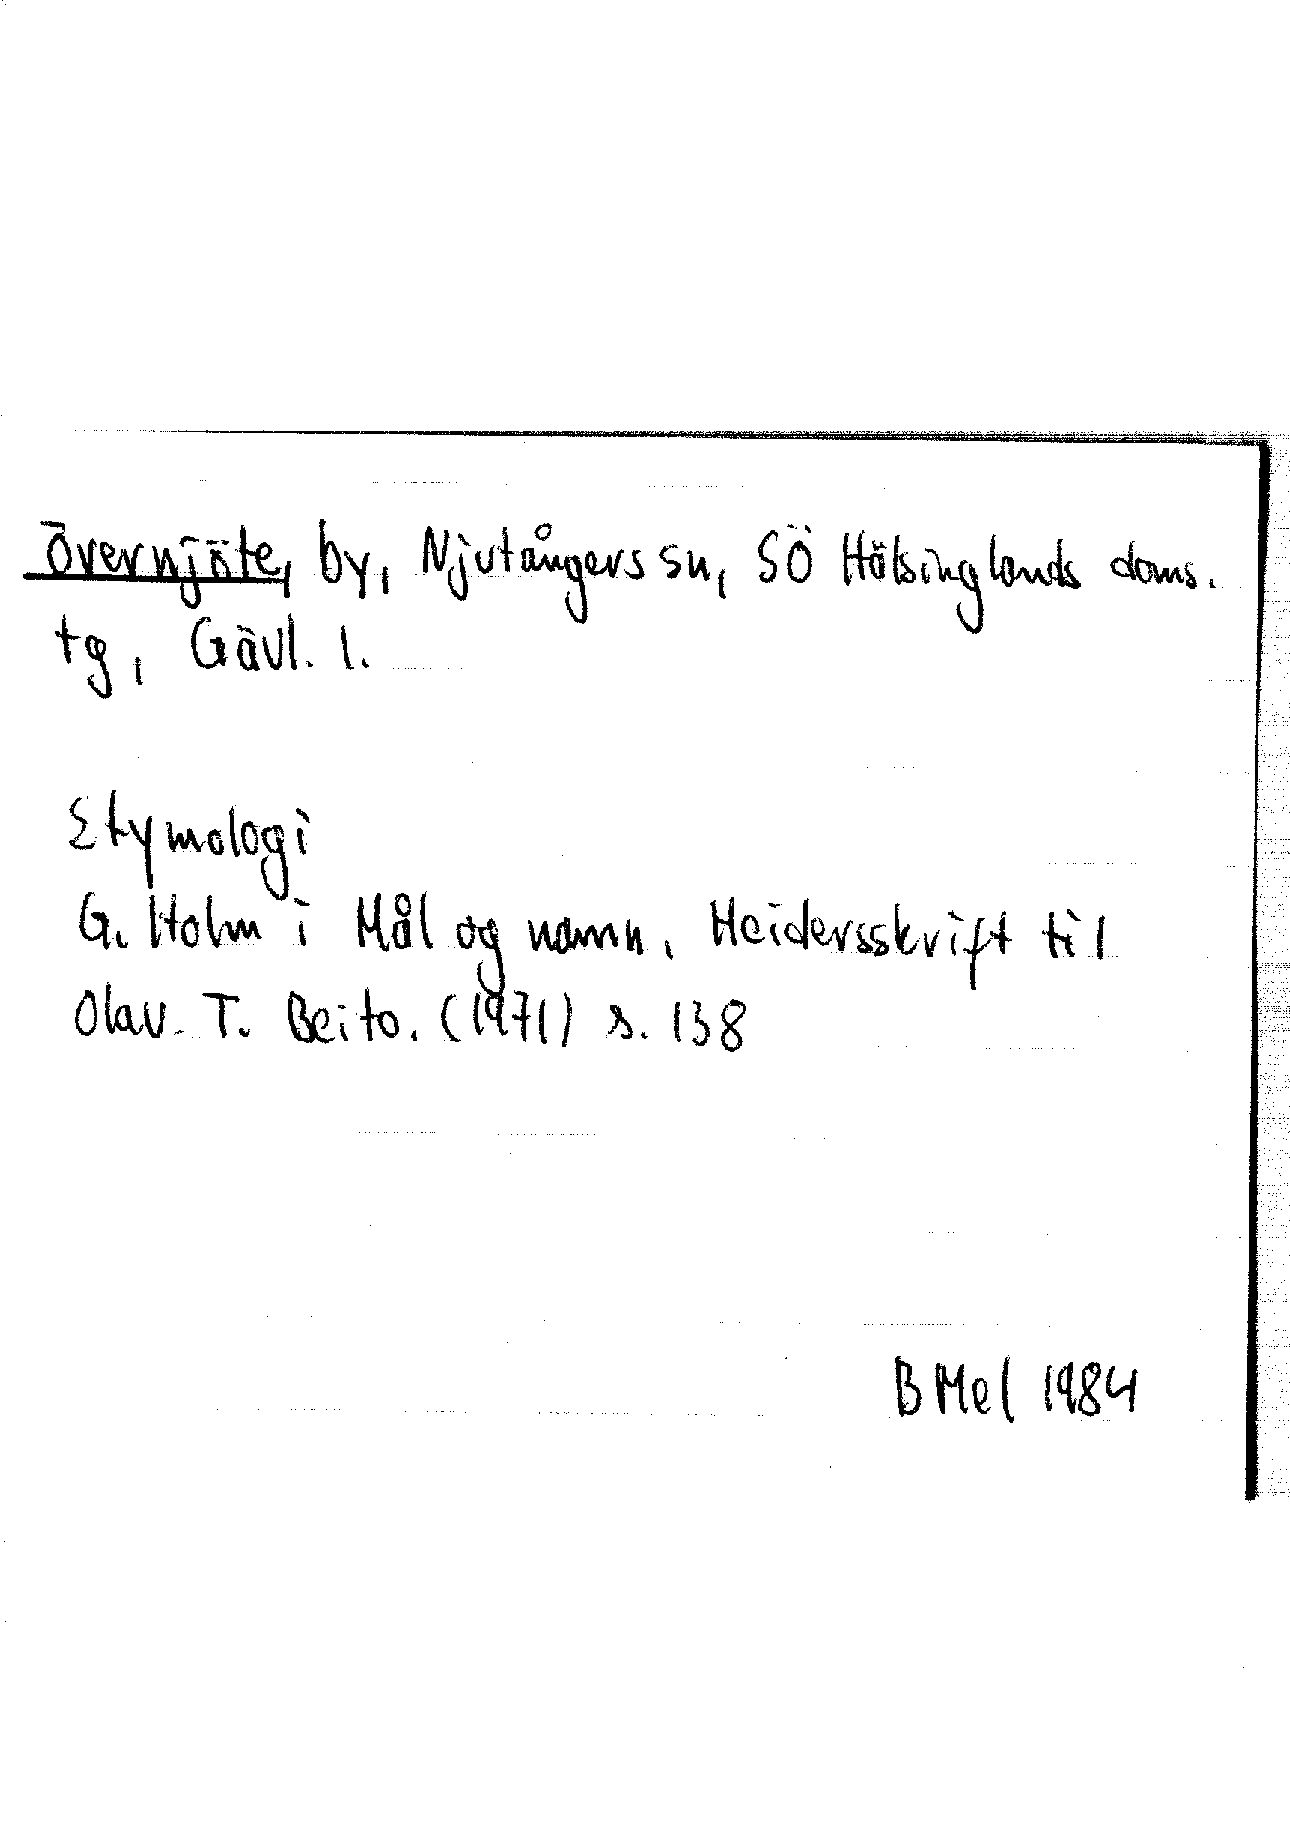 Övernjöte, by, Njutångers sn, SÖ Hälsinglands doms.
tg, Gävl. l.
Etymologi
G. Holm i Mål og namn. Heidersskrift til
Olav T. Beito. (1971) s. 138
B Mel 1984